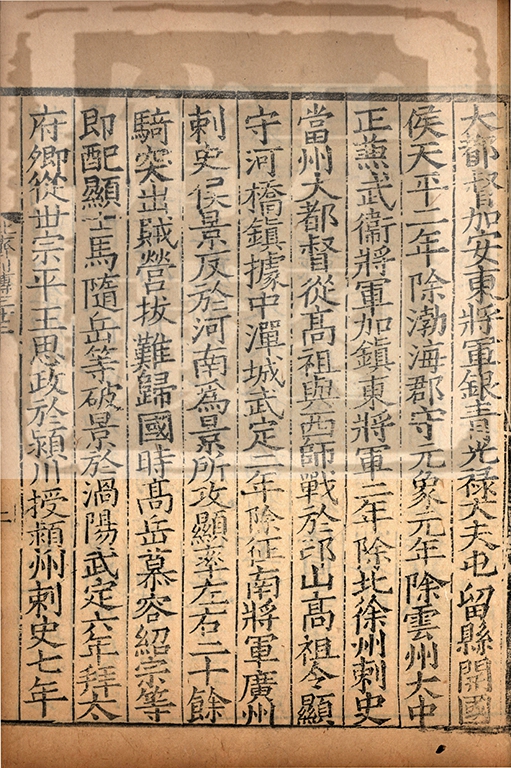 大都督加安東將軍銀青光禄大夫屯留縣開國
侯天平二年除渤海郡守元象元年除雲州大中
正兼武衞將軍加鎮東將軍二年除北徐州刺史
當州大都督從髙祖與西師戰於邙山高祖令顯
守河橋鎮據中潬城武定二年除征南將軍廣州
刺史侯景反於河南爲景所攻顯率左右二十餘
騎突出賊營拔難歸國時髙岳慕容紹宗等
即配顯士馬隨岳等破景於渦陽武定六年拜太
府卿從世宗平王思政於潁川授潁州刺史七年